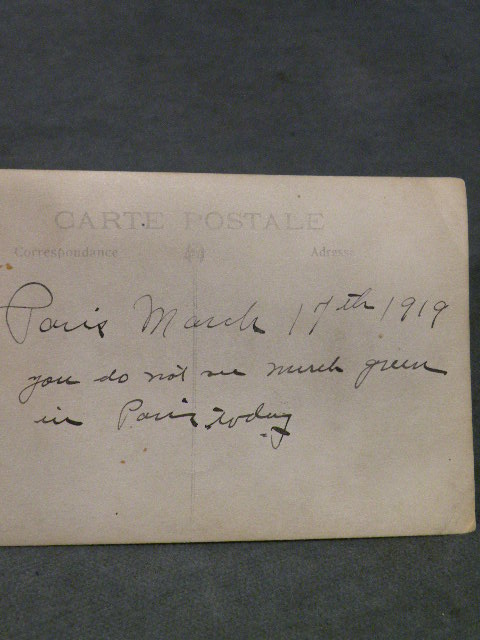 CARTE POSTALE
Correspondance Adresse
Paris March 17th 1919
you do not see much green
in Paris today